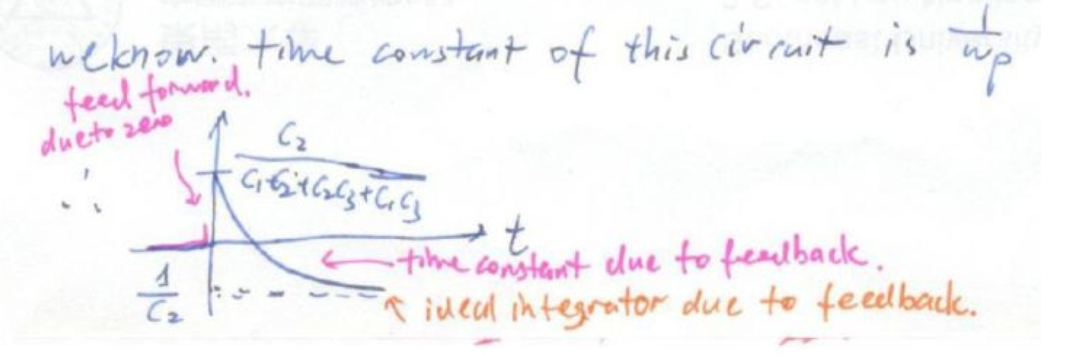 we know. time constant of this circuit is 1/wp
feed forward.
due to zero
∴
C2
C1C2+C2C3+C1C3
t
time constant due to feedback.
1/C2
ideal integrator due to feedback.